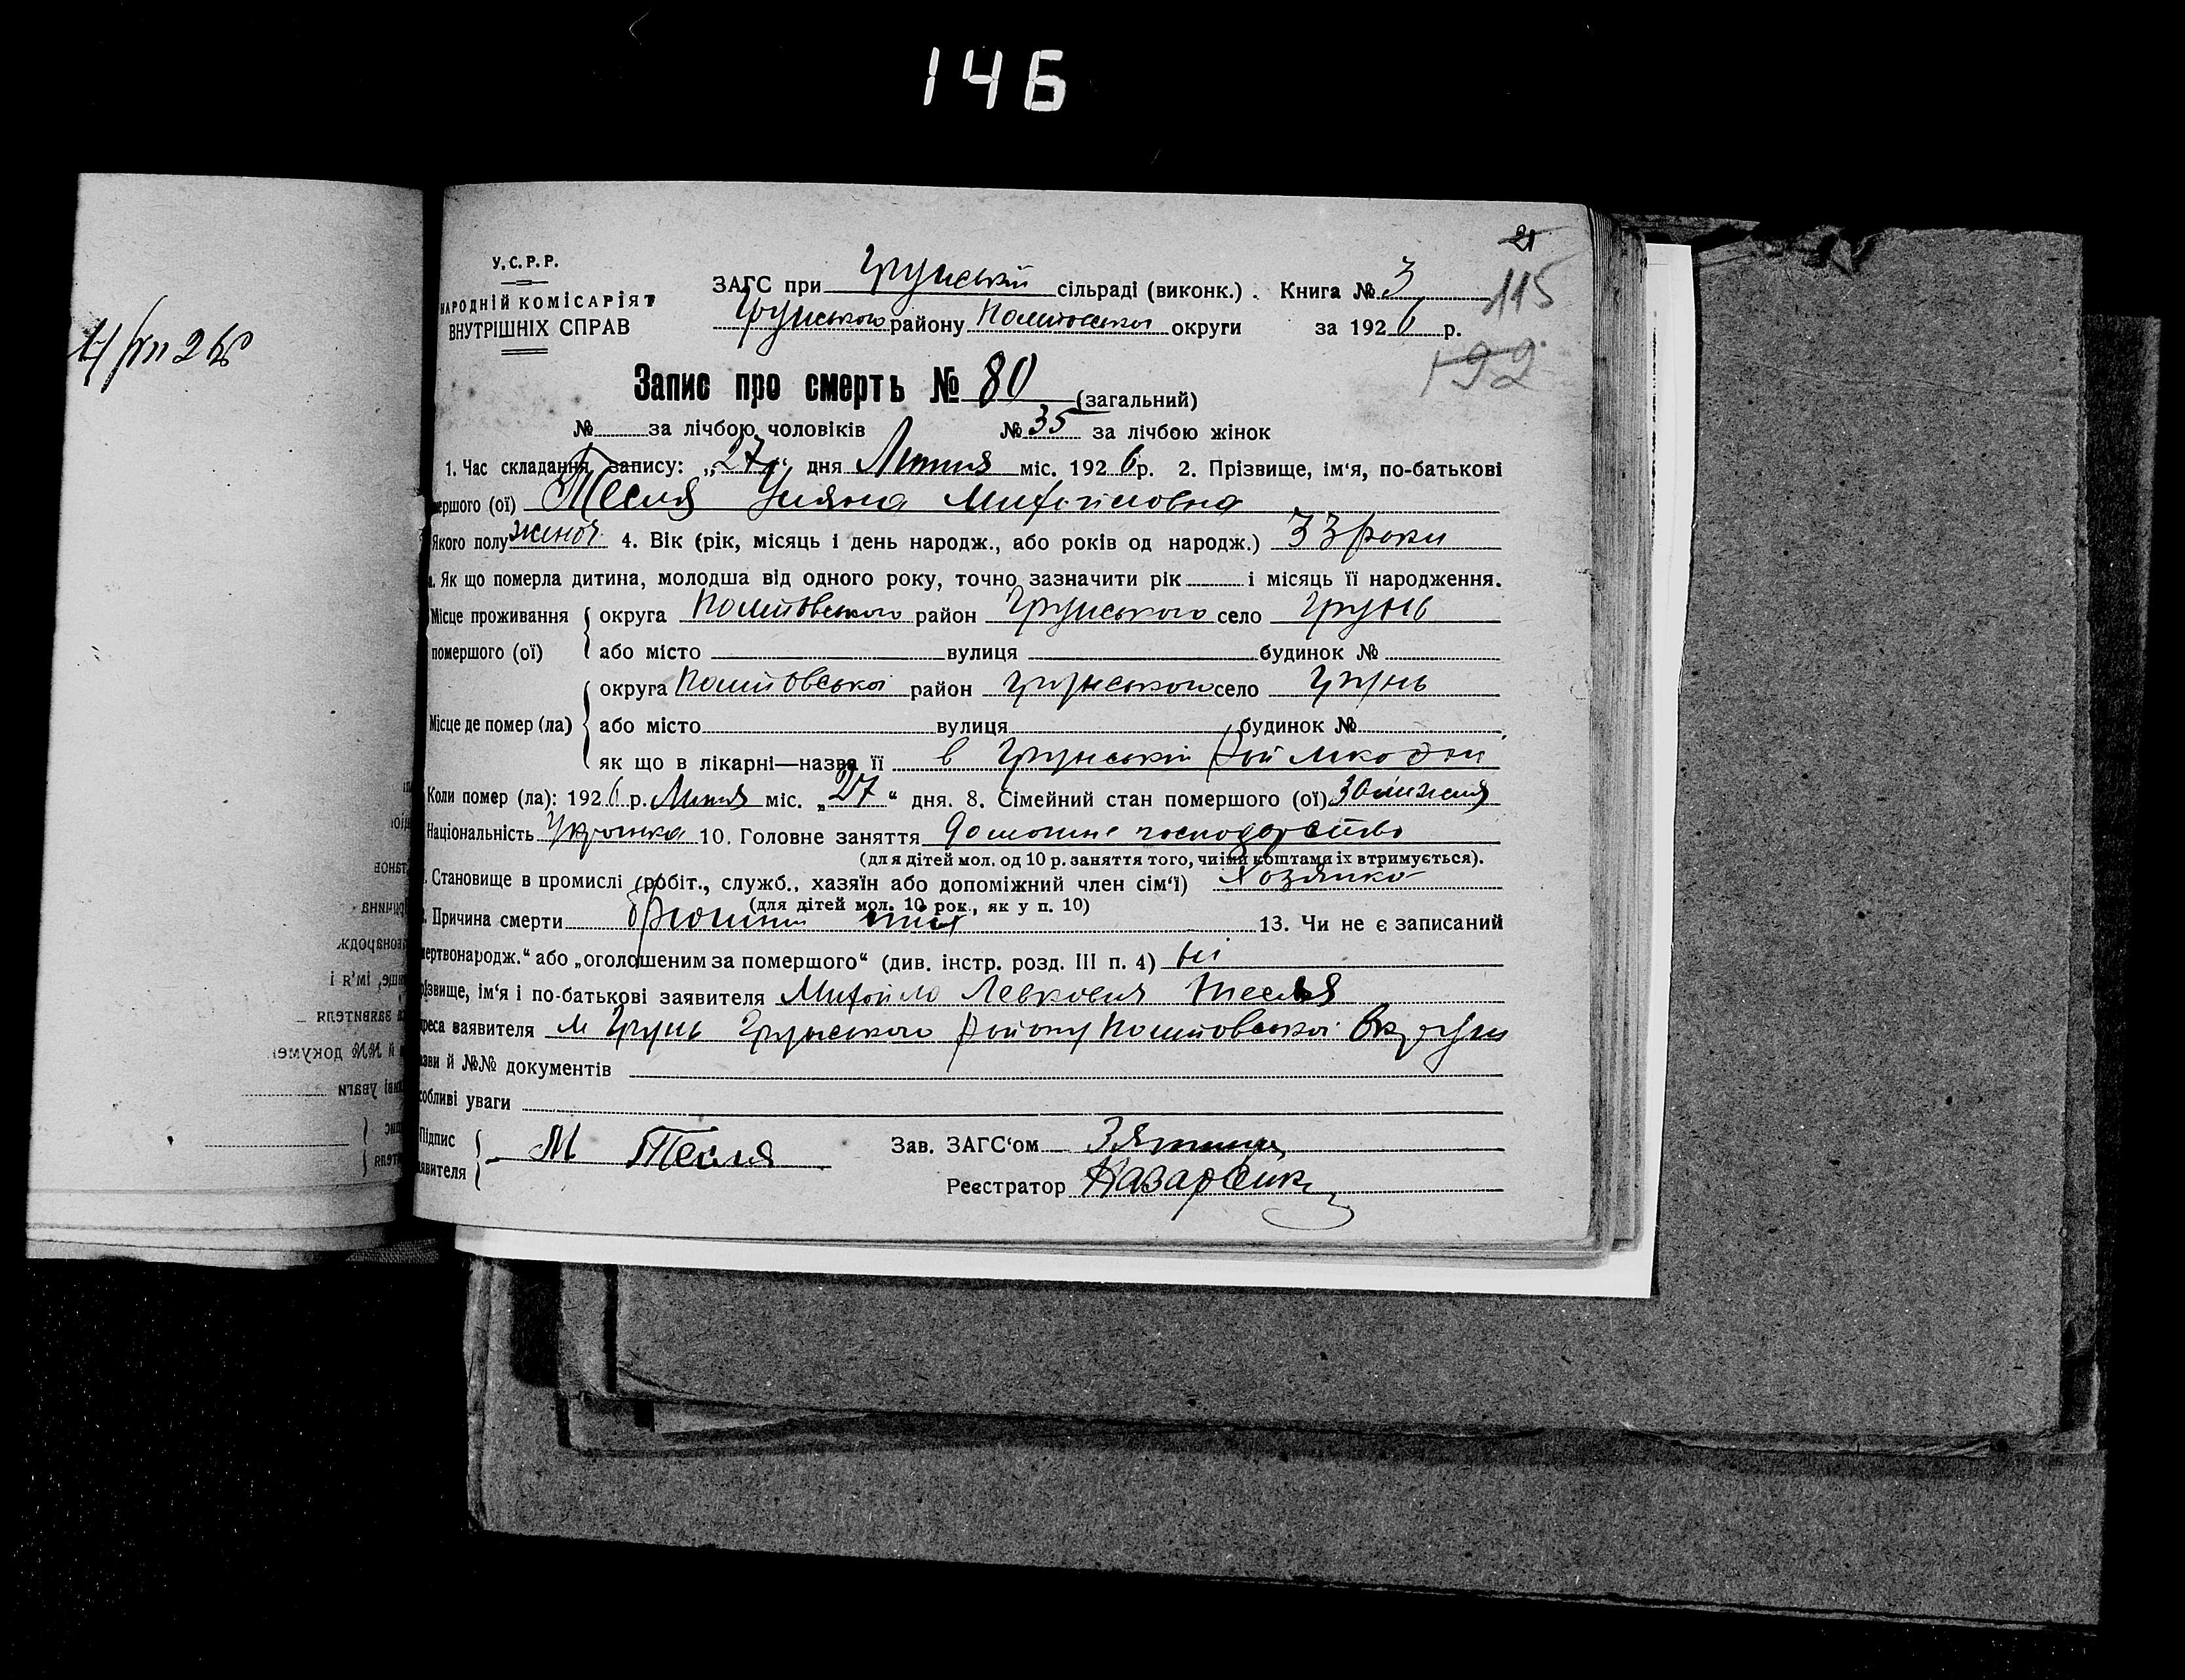 146
21
У.С.Р.Р.
НАРОДНІЙ КОМІСАРІЯТ
ВНУТРІШНІХ СПРАВ
ЗАГС при Грунській сільраді (виконк.). Книга № 3
115
Грунського району Полтовської округи за 1926 р.
192
Запис про смерть № 80 (загальний)
№ за лічбою чоловіків № 35 за лічбою жінок
1. Час складання запису: „27“ дня Липня міс. 1926 р. 2. Прізвище, ім‘я, по-батькові
мершого (ої) Тесля Уляна Михайловна
Якого полу жіноч. 4. Вік (рік, місяць і день народж., або років од народж.) 33 роки
а. Як що померла дитина, молодша від одного року, точно зазначити рік і місяць її народження.
Місце проживання округа Полтовського район Грунського село Грунь
померш­ого (ої) або місто вулиця будинок №
округа Полтовської район Грунського село Грунь
Місце де помер (ла) або місто вулиця будинок №
як що в лікарні—назва її в Грунській
Коли помер (ла): 1926 р. Липня міс. „27“ дня. 8. Сімейний стан померш­ого (ої) Замужня
Національність Українка 10. Головне заняття домашнє господарство
(для дітей мол. од 10 р. заняття того, чиїми коштами їх втримується).
. Становище в промислі (робіт., служб., хазяїн або допоміжний член сім‘ї) Хозяйка
(для дітей мол. 10 рок., як у п. 10)
. Причина смерти 13. Чи не є записаний
мертвонародж.“ або „оголошеним за померш­ого“ (див. інстр. розд. III п. 4) ні
різвище, ім‘я і по-батькові заявителя Михайло Левкович Тесля
дреса заявителя м Грунь Грунського району Полтовської Округи
зви й №№ документів
собливі уваги
Підпис
явителя М Тесля
Зав. ЗАГС‘ом
Реєстратор Назаренк